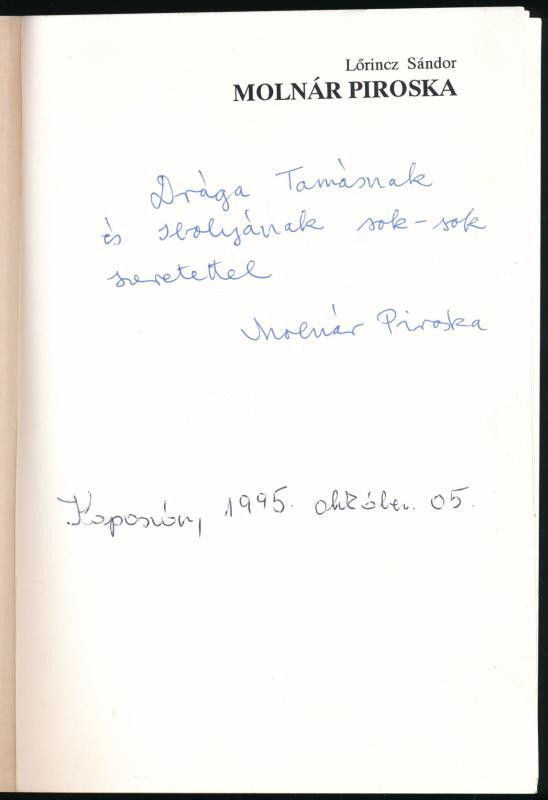 Lőrincz Sándor
MOLNÁR PIROSKA
Drága Tamásnak
és Ibolyának sok-sok
szeretettel
Molnár Piroska
Kaposvár, 1995. október. 05.